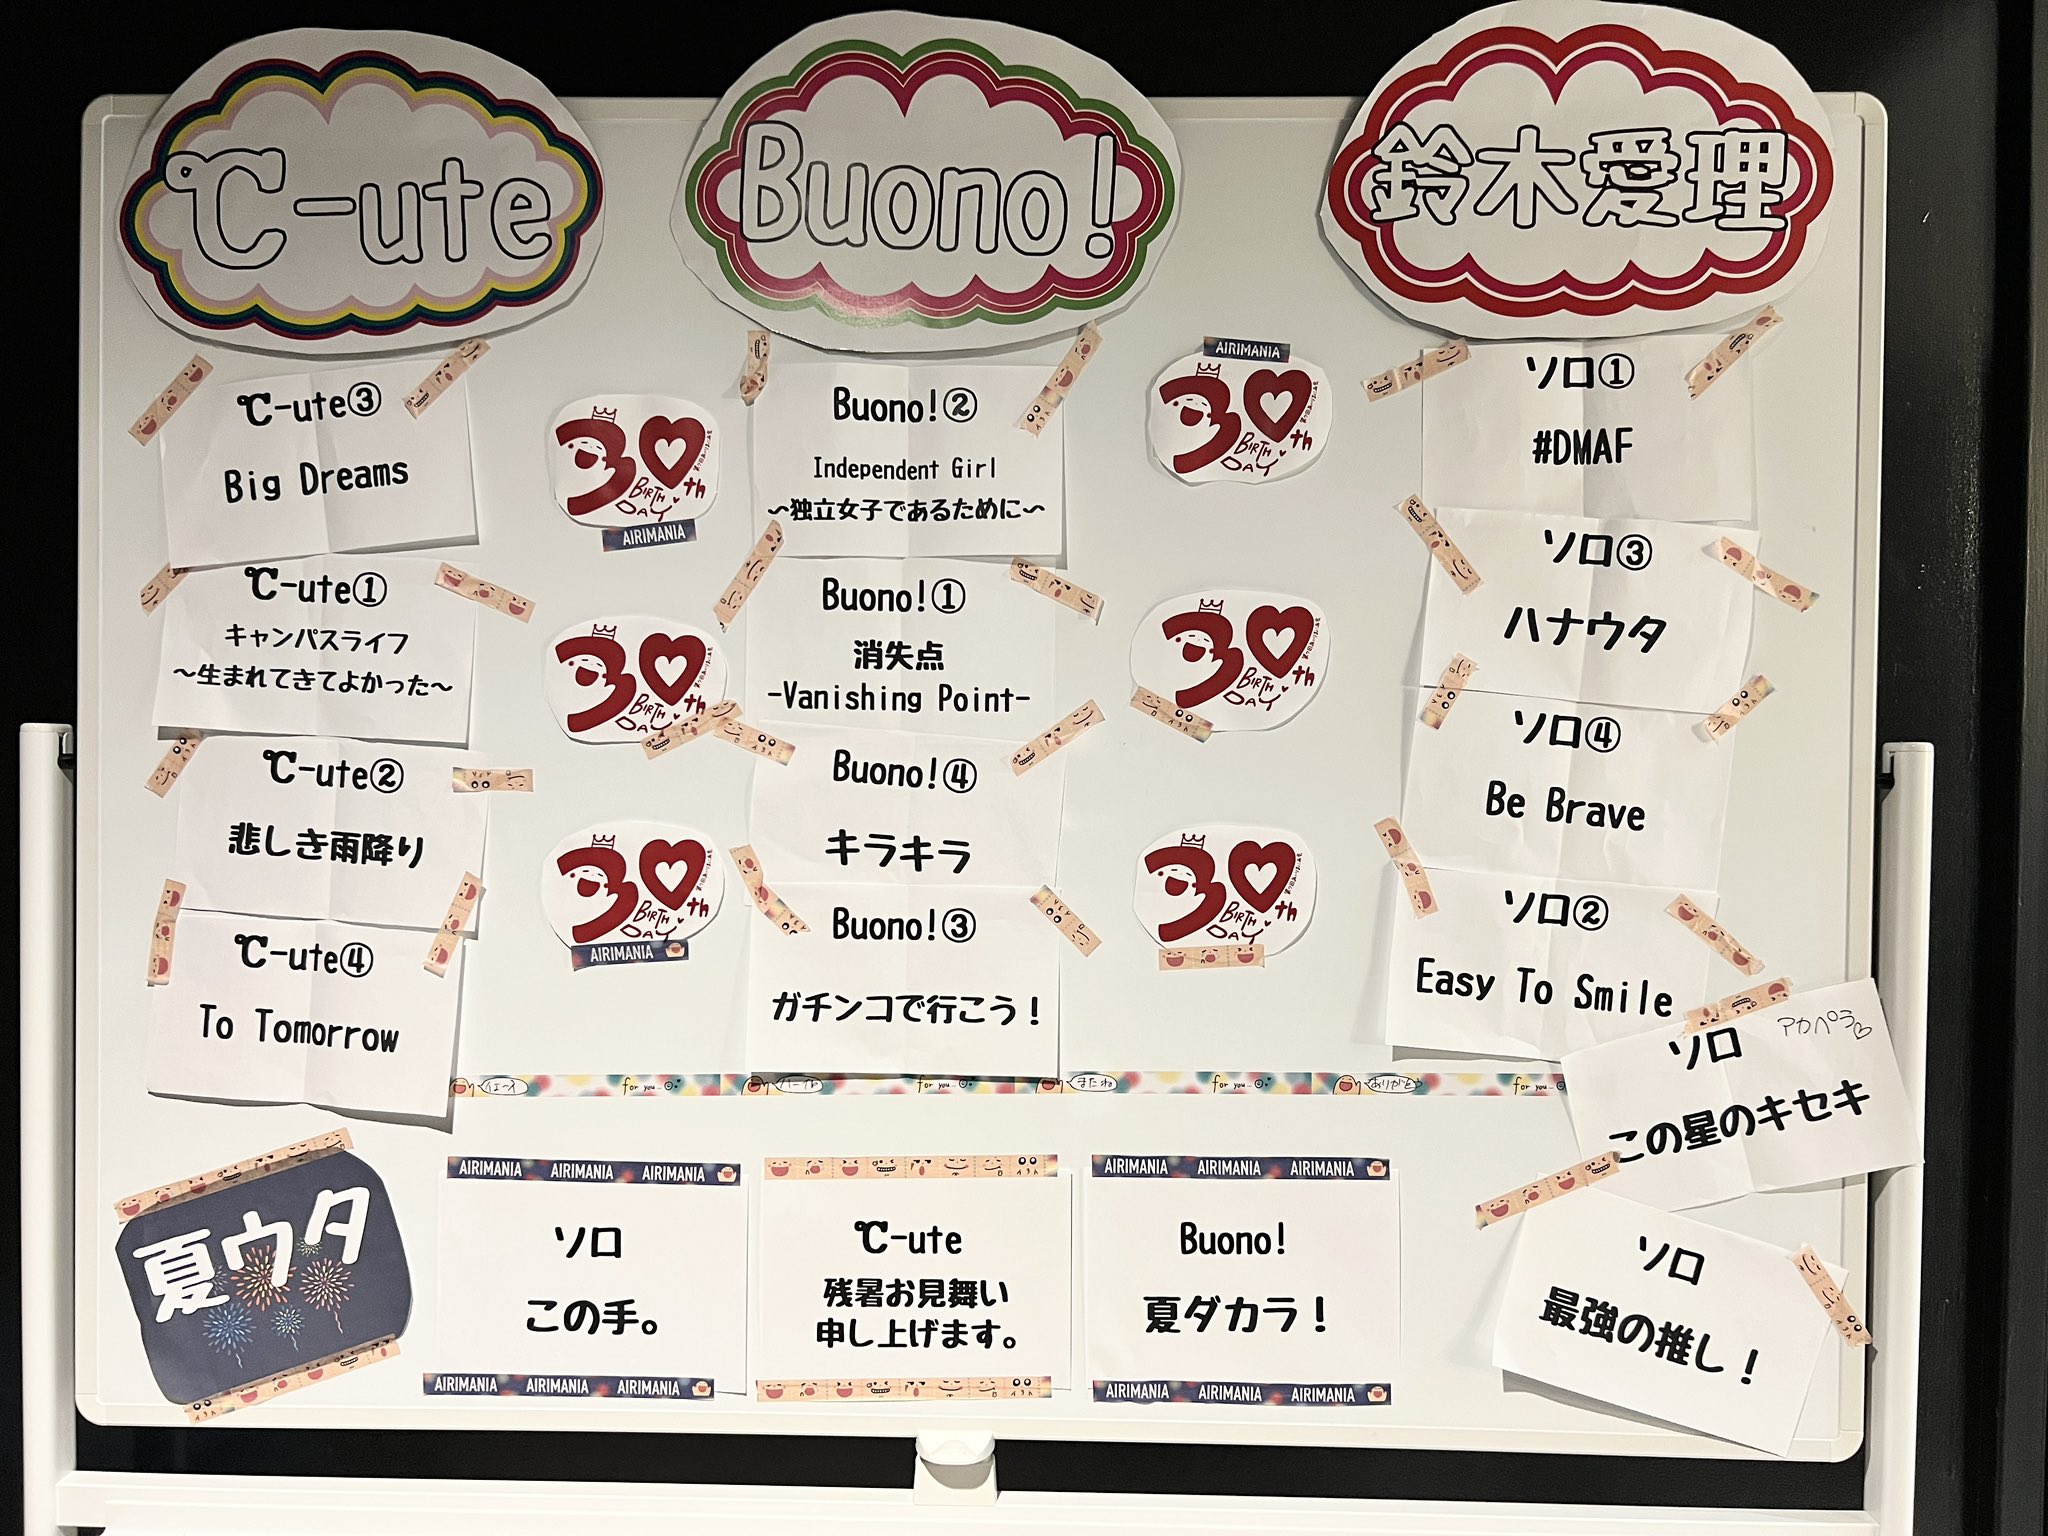 ℃-ute
Buono!
鈴木愛理
℃-ute③
Big Dreams
℃-ute①
キャンパスライフ
～生まれてきてよかった～
℃-ute②
悲しき雨降り
℃-ute④
To Tomorrow
30th
BIRTH
DAY
AIRIMANIA
30th
BIRTH
DAY
30th
BIRTH
DAY
AIRIMANIA
Buono!②
Independent Girl
～独立女子であるために～
Buono!①
消失点
-Vanishing Point-
Buono!④
キラキラ
Buono!③
ガチンコで行こう！
AIRIMANIA
30th
BIRTH
DAY
30th
BIRTH
DAY
30th
BIRTH
DAY
ソロ①
#DMAF
ソロ③
ハナウタ
ソロ④
Be Brave
ソロ②
Easy To Smile
ソロ
アカペラ♡
この星のキセキ
ソロ
最強の推し！
for you
for you
またね
for you
ありがとう
for you
夏ウタ
AIRIMANIA AIRIMANIA AIRIMANIA
ソロ
この手。
AIRIMANIA AIRIMANIA AIRIMANIA
℃-ute
残暑お見舞い
申し上げます。
AIRIMANIA AIRIMANIA AIRIMANIA
Buono!
夏ダカラ！
AIRIMANIA AIRIMANIA AIRIMANIA